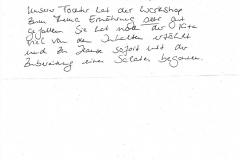 Unsere Tochter hat der Workshop
zum Thema Ernährung sehr gut
gefallen. Sie hat nach der Kita
viel von den Inhalten erzählt
und zu Hause sofort mit der
Zubereitung eines Salates begonnen.